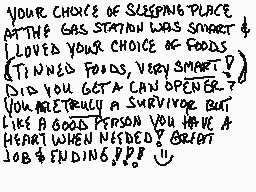 YOUR CHOICE OF SLEEPING PLACE
AT THE GAS STATION WAS SMART &
I LOVED YOUR CHOICE OF FOODS
(TINNED FOODS, VERY SMART!)
DID YOU GET A CAN OPENER?
YOU ARE TRULY A SURVIVOR BUT
LIKE A GOOD PERSON YOU HAVE A
HEART WHEN NEEDED! GREAT
JOB & ENDING!!! :)